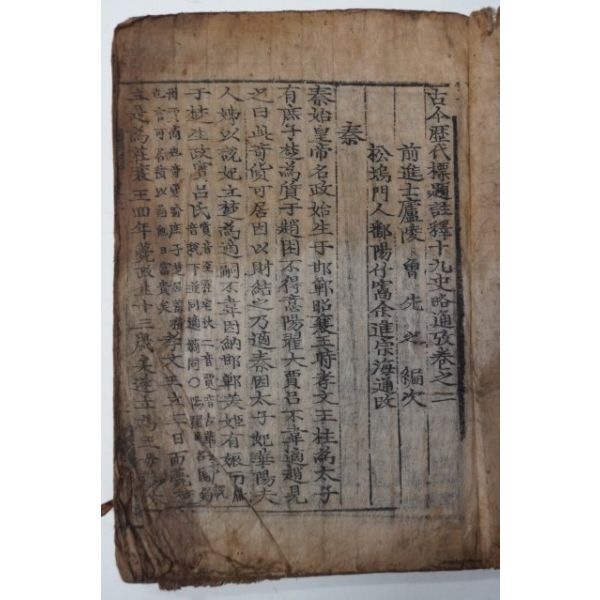 古今歷代標題註釋十九史略通攷卷之二
前進士廬陵 曾 先之 編次
松塢門人鄱陽竹窩余進宗海通攷
秦
秦始皇帝名政始生于邯鄲昭襄王時孝文王柱為太子
有庶子楚為質于趙困不得意陽翟大賈呂不韋適趙見
之曰此奇貨可居因以財結之乃適秦因太子妃華陽夫
人姊以說妃立楚為適嗣不韋因納邯鄲美姬有娠而獻
于楚生政實呂氏
孝文王立三日而薨
楚立是為莊襄王四年薨政生十三歲矣遂立為王母